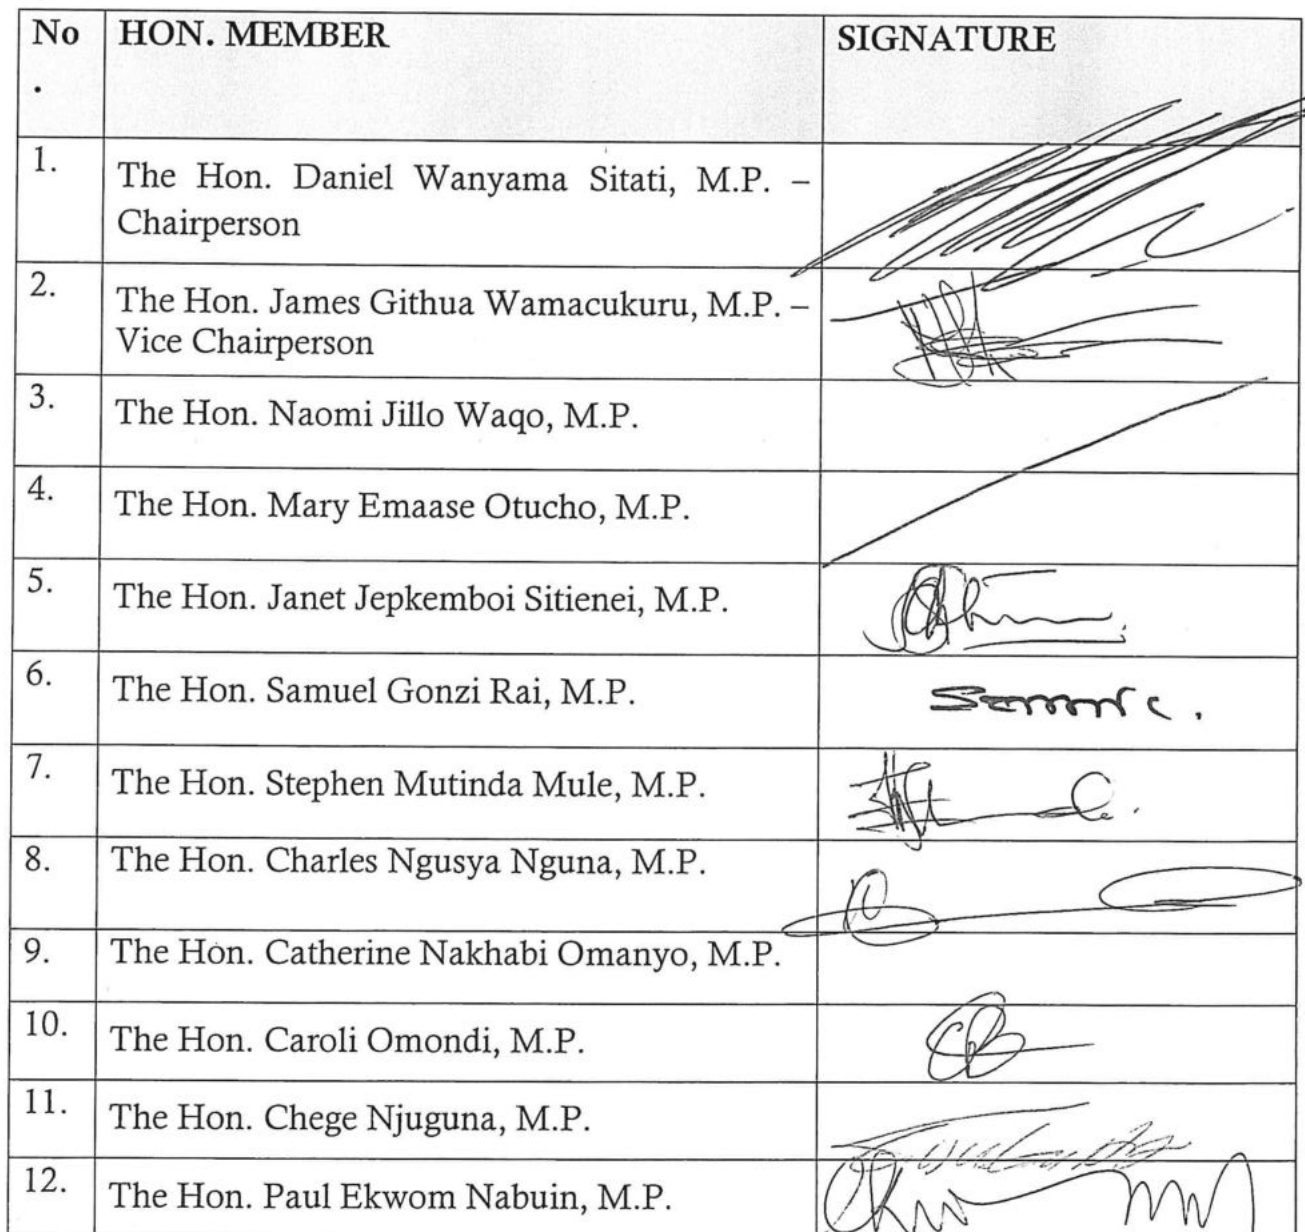 No HON. MEMBER SIGNATURE
.
1. The Hon. Daniel Wanyama Sitati, M.P. –
Chairperson
2. The Hon. James Githua Wamacukuru, M.P. –
Vice Chairperson
3. The Hon. Naomi Jillo Waqo, M.P.
4. The Hon. Mary Emaase Otucho, M.P.
5. The Hon. Janet Jepkemboi Sitienei, M.P.
6. The Hon. Samuel Gonzi Rai, M.P.
7. The Hon. Stephen Mutinda Mule, M.P.
8. The Hon. Charles Ngusya Nguna, M.P.
9. The Hon. Catherine Nakhabi Omanyo, M.P.
10. The Hon. Caroli Omondi, M.P.
11. The Hon. Chege Njuguna, M.P.
12. The Hon. Paul Ekwom Nabuin, M.P.